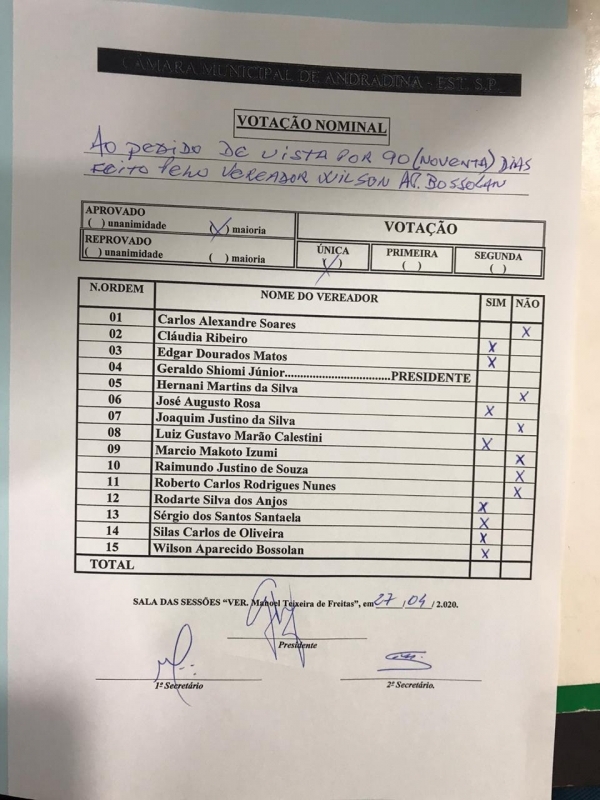 CÂMARA MUNICIPAL DE ANDRADINA - EST. S.P.
VOTAÇÃO NOMINAL
AO PEDIDO DE VISTA POR 90 (NOVENTA) DIAS
FEITO PELO VEREADOR WILSON AP. BOSSOLAN
APROVADO
( ) unanimidade (X) maioria
REPROVADO
( ) unanimidade ( ) maioria
VOTAÇÃO
ÚNICA PRIMEIRA SEGUNDA
(X) ( ) ( )
N.ORDEM NOME DO VEREADOR SIM NÃO
01 Carlos Alexandre Soares X
02 Cláudia Ribeiro X
03 Edgar Dourados Matos X
04 Geraldo Shiomi Júnior....................................PRESIDENTE
05 Hernani Martins da Silva X
06 José Augusto Rosa X
07 Joaquim Justino da Silva X
08 Luiz Gustavo Marão Calestini X
09 Marcio Makoto Izumi X
10 Raimundo Justino de Souza X
11 Roberto Carlos Rodrigues Nunes X
12 Rodarte Silva dos Anjos X
13 Sérgio dos Santos Santaela X
14 Silas Carlos de Oliveira X
15 Wilson Aparecido Bossolan X
TOTAL
SALA DAS SESSÕES “VER. Manoel Teixeira de Freitas”, em 27 / 04 / 2.020.
Presidente
1º Secretário 2º Secretário.